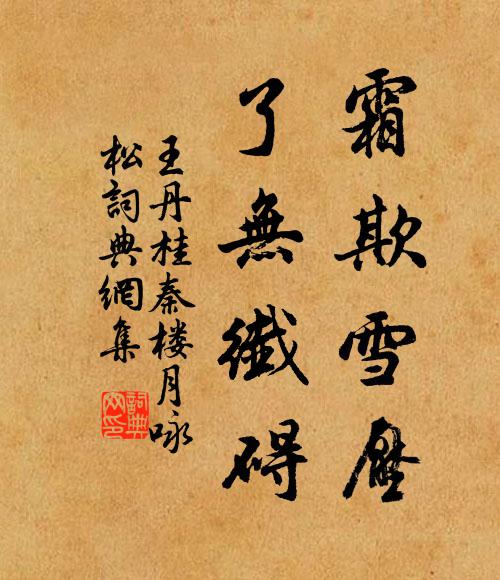 霜欺雪壓
了無纖碍
王丹桂秦楼月咏
松詞典網集
詞典
网印